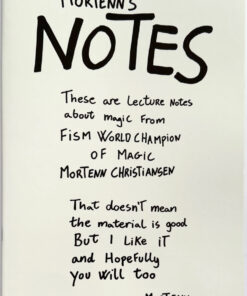 MORTENN'S
NOTES
These are Lecture Notes
about magic From
FISM WORLD CHAMPION
OF MAGIC
MORTENN CHRISTIANSEN
That doesn't mean
the material is good
But I Like IT
and Hopefully
You Will Too